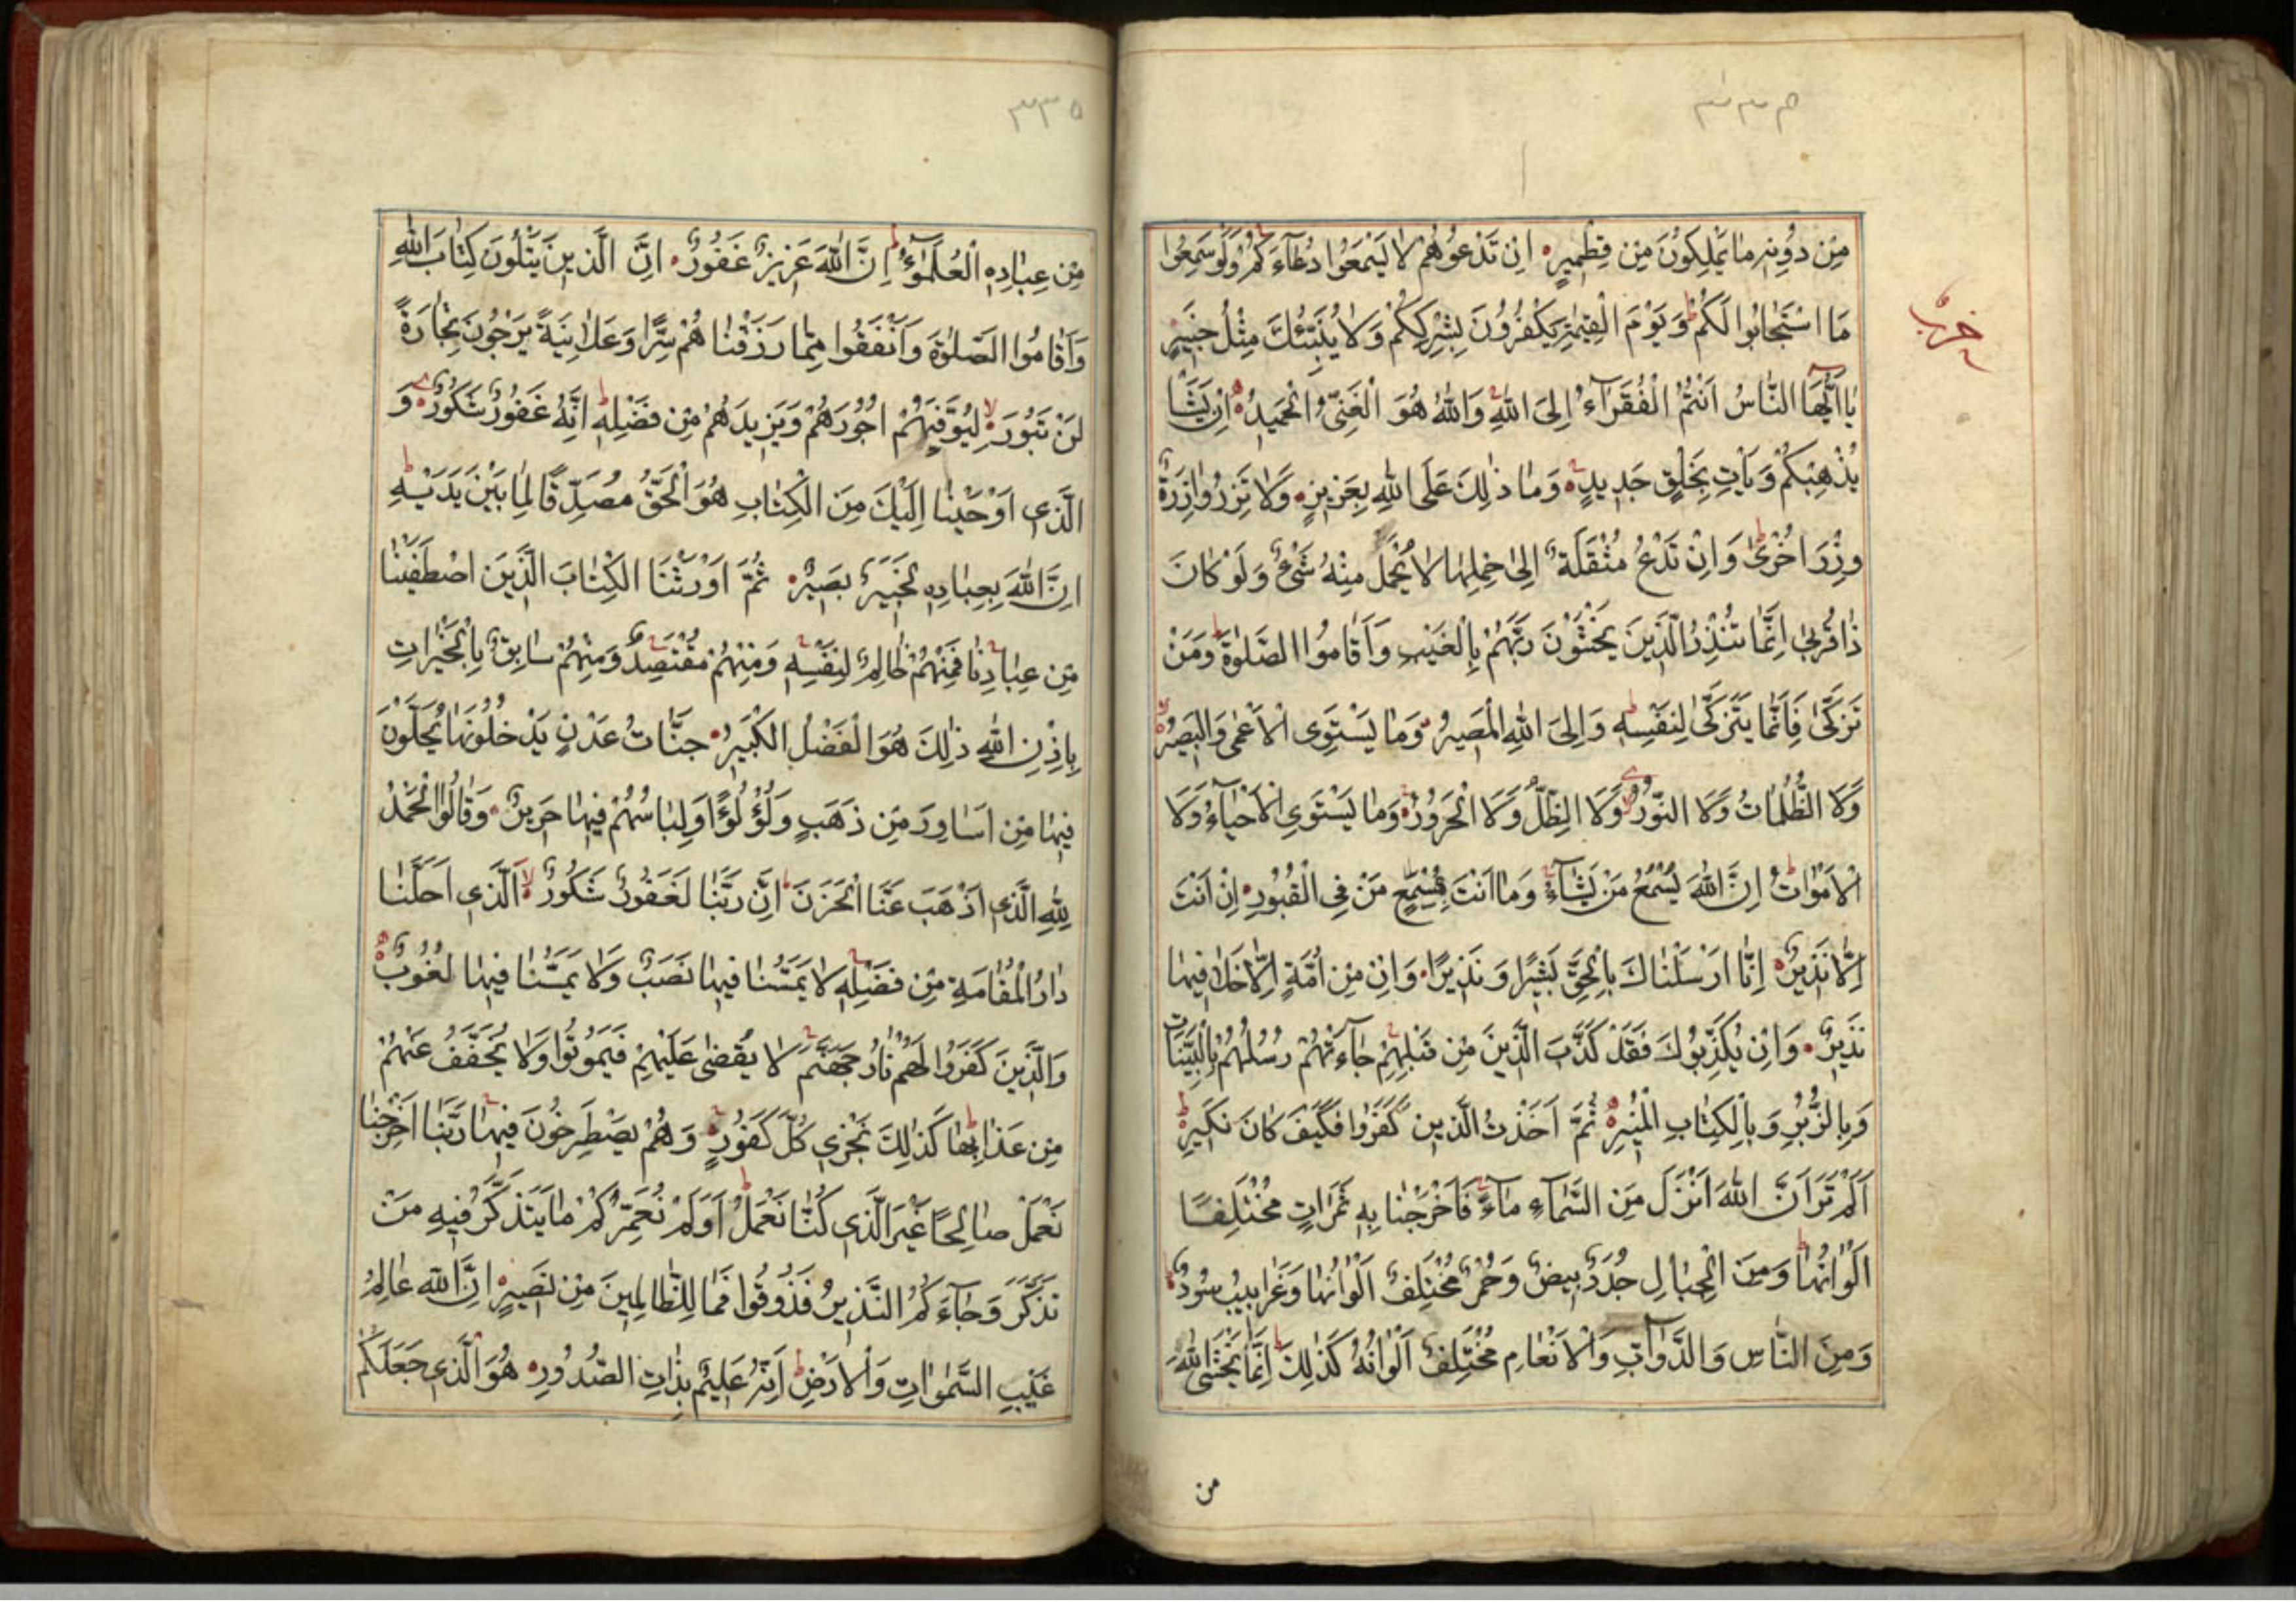 ٣٣٤
حزب
مِنْ دُونِهِ مَا يَمْلِكُونَ مِنْ قِطْمِيرٍ اِنْ تَدْعُوهُمْ لَا يَسْمَعُوا دُعَاءَكُمْ وَلَوْ سَمِعُوا
مَا اسْتَجَابُوا لَكُمْ وَيَوْمَ الْقِيٰمَةِ يَكْفُرُونَ بِشِرْكِكُمْ وَلَا يُنَبِّئُكَ مِثْلُ خَبِيرٍ
يَا اَيُّهَا النَّاسُ اَنْتُمُ الْفُقَرَاءُ اِلَى اللّٰهِ وَاللّٰهُ هُوَ الْغَنِيُّ الْحَمِيدُ اِنْ يَشَأْ
يُذْهِبْكُمْ وَيَأْتِ بِخَلْقٍ جَدِيدٍ وَمَا ذٰلِكَ عَلَى اللّٰهِ بِعَزِيزٍ وَلَا تَزِرُ وَازِرَةٌ
وِزْرَ اُخْرٰى وَاِنْ تَدْعُ مُثْقَلَةٌ اِلٰى حِمْلِهَا لَا يُحْمَلْ مِنْهُ شَيْءٌ وَلَوْ كَانَ
ذَا قُرْبٰى اِنَّمَا تُنْذِرُ الَّذِينَ يَخْشَوْنَ رَبَّهُمْ بِالْغَيْبِ وَاَقَامُوا الصَّلٰوةَ وَمَنْ
تَزَكّٰى فَاِنَّمَا يَتَزَكّٰى لِنَفْسِهِ وَاِلَى اللّٰهِ الْمَصِيرُ وَمَا يَسْتَوِى الْاَعْمٰى وَالْبَصِيرُ
وَلَا الظُّلُمَاتُ وَلَا النُّورُ وَلَا الظِّلُّ وَلَا الْحَرُورُ وَمَا يَسْتَوِى الْاَحْيَاءُ وَلَا
الْاَمْوَاتُ اِنَّ اللّٰهَ يُسْمِعُ مَنْ يَشَاءُ وَمَا اَنْتَ بِمُسْمِعٍ مَنْ فِى الْقُبُورِ اِنْ اَنْتَ
اِلَّا نَذِيرٌ اِنَّا اَرْسَلْنَاكَ بِالْحَقِّ بَشِيرًا وَنَذِيرًا وَاِنْ مِنْ اُمَّةٍ اِلَّا خَلَا فِيهَا
نَذِيرٌ وَاِنْ يُكَذِّبُوكَ فَقَدْ كَذَّبَ الَّذِينَ مِنْ قَبْلِهِمْ جَاءَتْهُمْ رُسُلُهُمْ بِالْبَيِّنَاتِ
وَبِالزُّبُرِ وَبِالْكِتَابِ الْمُنِيرِ ثُمَّ اَخَذْتُ الَّذِينَ كَفَرُوا فَكَيْفَ كَانَ نَكِيرِ
اَلَمْ تَرَ اَنَّ اللّٰهَ اَنْزَلَ مِنَ السَّمَاءِ مَاءً فَاَخْرَجْنَا بِهِ ثَمَرَاتٍ مُخْتَلِفًا
اَلْوَانُهَا وَمِنَ الْجِبَالِ جُدَدٌ بِيضٌ وَحُمْرٌ مُخْتَلِفٌ اَلْوَانُهَا وَغَرَابِيبُ سُودٌ
وَمِنَ النَّاسِ وَالدَّوَابِّ وَالْاَنْعَامِ مُخْتَلِفٌ اَلْوَانُهُ كَذٰلِكَ اِنَّمَا يَخْشَى اللّٰهَ
من
٣٣٥
مِنْ عِبَادِهِ الْعُلَمٰٓؤُا اِنَّ اللّٰهَ عَزِيزٌ غَفُورٌ اِنَّ الَّذِينَ يَتْلُونَ كِتَابَ اللّٰهِ
وَاَقَامُوا الصَّلٰوةَ وَاَنْفَقُوا مِمَّا رَزَقْنَا هُمْ سِرًّا وَعَلَانِيَةً يَرْجُونَ تِجَارَةً
لَنْ تَبُورَ لِيُوَفِّيَهُمْ اُجُورَهُمْ وَيَزِيدَهُمْ مِنْ فَضْلِهِ اِنَّهُ غَفُورٌ شَكُورٌ وَ
الَّذِى اَوْحَيْنَا اِلَيْكَ مِنَ الْكِتَابِ هُوَ الْحَقُّ مُصَدِّقًا لِمَا بَيْنَ يَدَيْهِ
اِنَّ اللّٰهَ بِعِبَادِهِ لَخَبِيرٌ بَصِيرٌ ثُمَّ اَوْرَثْنَا الْكِتَابَ الَّذِينَ اصْطَفَيْنَا
مِنْ عِبَادِنَا فَمِنْهُمْ ظَالِمٌ لِنَفْسِهِ وَمِنْهُمْ مُقْتَصِدٌ وَمِنْهُمْ سَابِقٌ بِالْخَيْرَاتِ
بِاِذْنِ اللّٰهِ ذٰلِكَ هُوَ الْفَضْلُ الْكَبِيرُ جَنَّاتُ عَدْنٍ يَدْخُلُونَهَا يُحَلَّوْنَ
فِيهَا مِنْ اَسَاوِرَ مِنْ ذَهَبٍ وَلُؤْلُؤًا وَلِبَاسُهُمْ فِيهَا حَرِيرٌ وَقَالُوا الْحَمْدُ
لِلّٰهِ الَّذِى اَذْهَبَ عَنَّا الْحَزَنَ اِنَّ رَبَّنَا لَغَفُورٌ شَكُورٌ اَلَّذِى اَحَلَّنَا
دَارَ الْمُقَامَةِ مِنْ فَضْلِهِ لَا يَمَسُّنَا فِيهَا نَصَبٌ وَلَا يَمَسُّنَا فِيهَا لُغُوبٌ
وَالَّذِينَ كَفَرُوا لَهُمْ نَارُ جَهَنَّمَ لَا يُقْضٰى عَلَيْهِمْ فَيَمُوتُوا وَلَا يُخَفَّفُ عَنْهُمْ
مِنْ عَذَابِهَا كَذٰلِكَ نَجْزِى كُلَّ كَفُورٍ وَهُمْ يَصْطَرِخُونَ فِيهَا رَبَّنَا اَخْرِجْنَا
نَعْمَلْ صَالِحًا غَيْرَ الَّذِى كُنَّا نَعْمَلُ اَوَلَمْ نُعَمِّرْكُمْ مَا يَتَذَكَّرُ فِيهِ مَنْ
تَذَكَّرَ وَجَاءَكُمُ النَّذِيرُ فَذُوقُوا فَمَا لِلظَّالِمِينَ مِنْ نَصِيرٍ اِنَّ اللّٰهَ عَالِمُ
غَيْبِ السَّمٰوَاتِ وَالْاَرْضِ اِنَّهُ عَلِيمٌ بِذَاتِ الصُّدُورِ هُوَ الَّذِى جَعَلَكُمْ